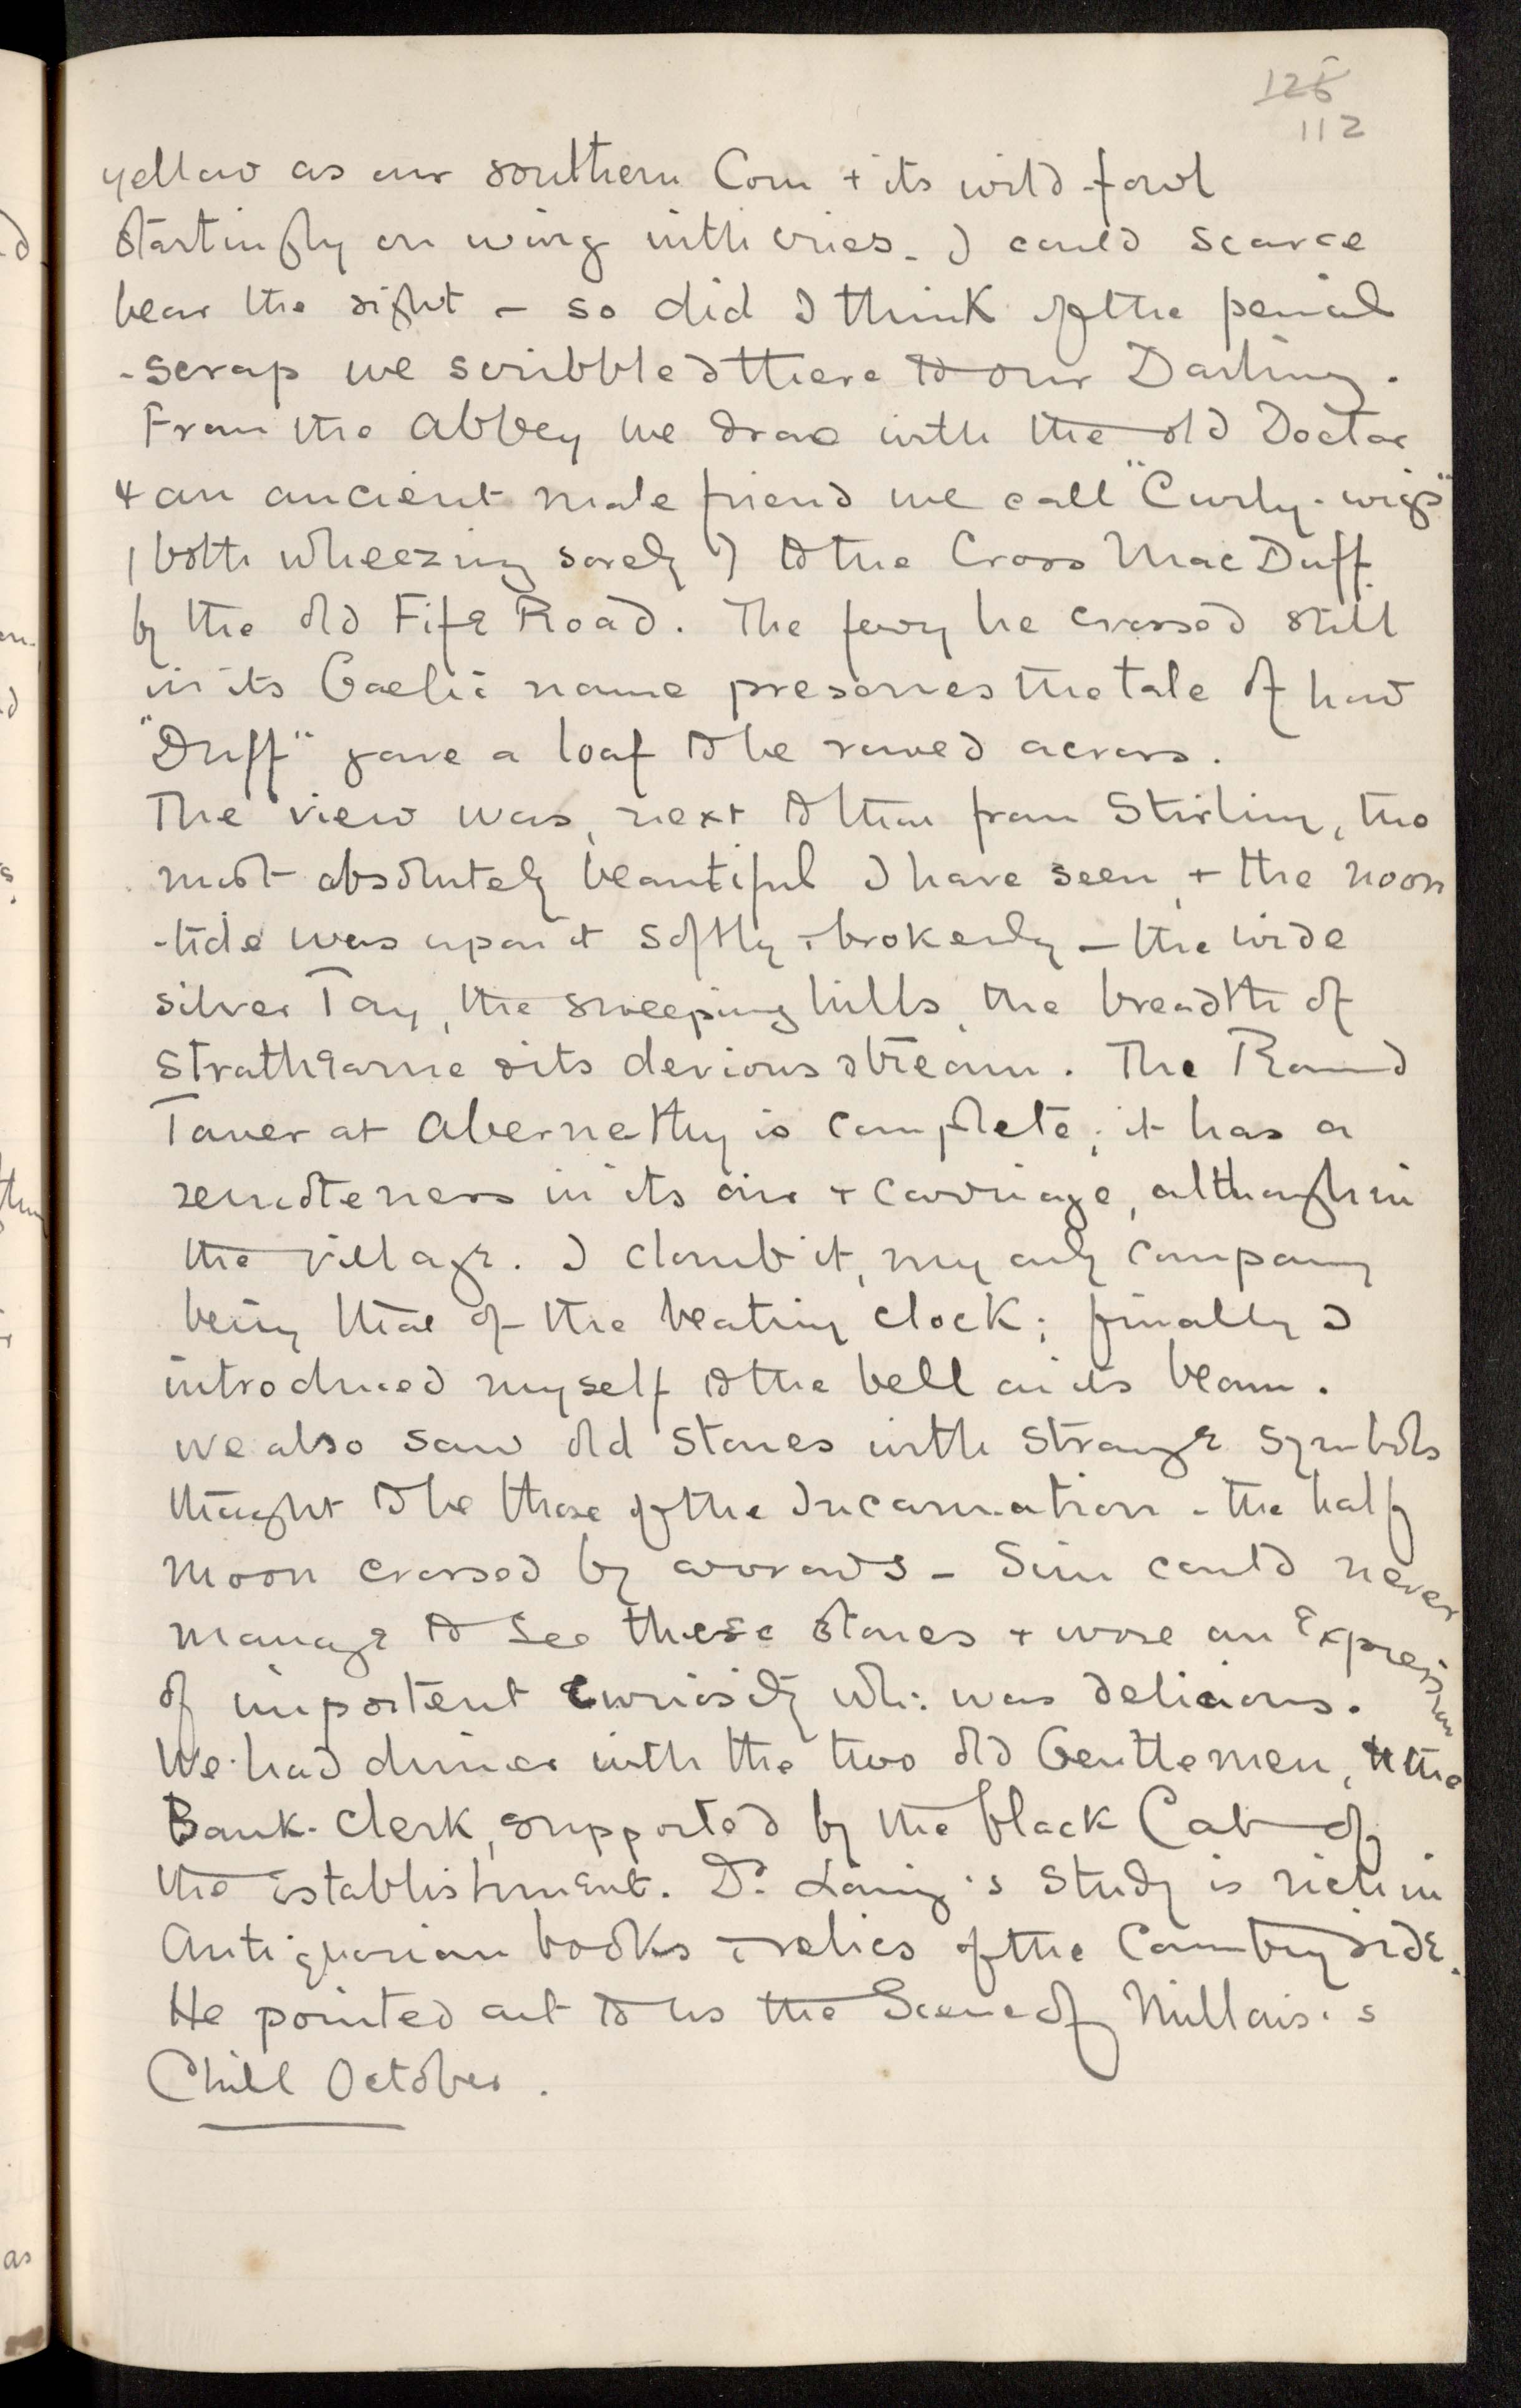 125
112
yellow as our southern Corn + its wild-fowl
startingly on wing with cries. I could scarce
bear the sight – so did I think of the pencil
-scrap we scribbled there to our Darling.
From the Abbey we drove with the old Doctor
& an ancient male friend we call "Curly-wigs"
(both wheezing sorely) to the Cross MacDuff
by the old Fife Road. The ferry he crossed still
in its Gaelic name preserves the tale of how
"Duff" gave a loaf to be rowed across.
The view was, next to that from Stirling, the
most absolutely beautiful I have seen, + the noon
-tide was upon it softly + brokenly – the wide
silver Tay, the sweeping hills, the breadth of
Strathearne & its devious stream. The Round
Tower at Abernethy is complete; it has a
remoteness in its air + carriage, although in
the village. I clomb it, my only company
being that of the beating clock; finally I
introduced myself to the bell on its beam.
We also saw old stones with strange symbols
thought to be those of the Incarnation – the half
moon crossed by arrows – Sim could never
manage to see these stones + wore an expression
of impotent curiosity wh: was delicious.
We had dinner with the two old Gentlemen, & the
Bank-Clerk, supported by the black Cat of
the establishment. Dr. Laing's Study is rich in
Antiquarian books + relics of the Country side.
He pointed out to us the Scene of Millais's
Chill October.